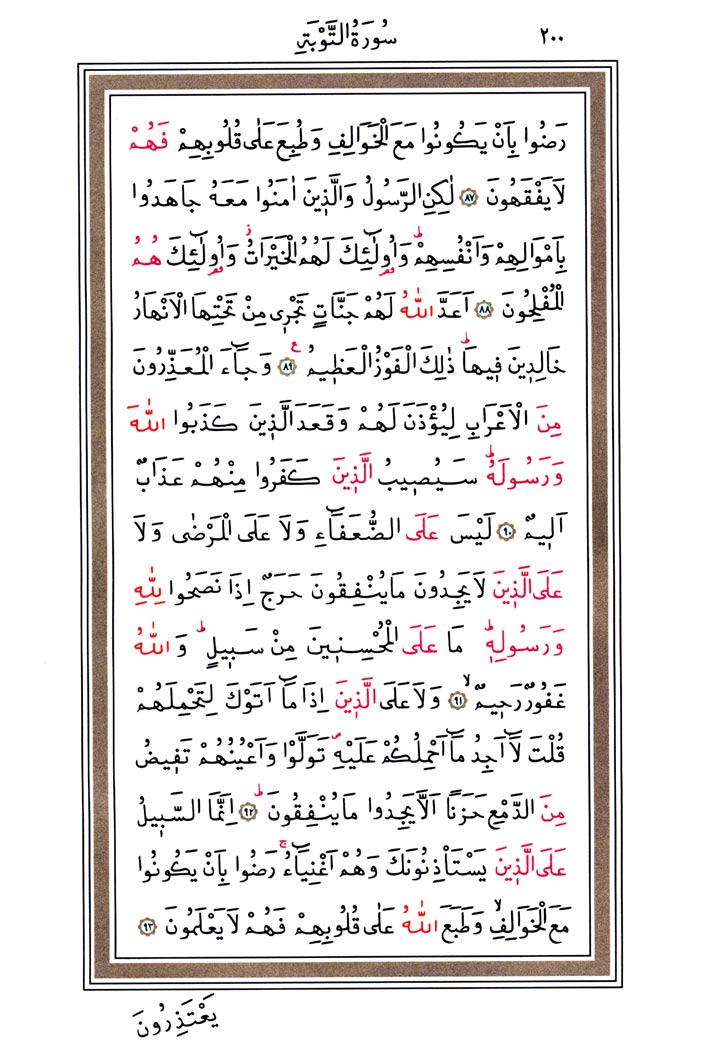 ٢٠٠
سُورَةُ التَّوْبَةِ
رَضُوا بِاَنْ يَكُونُوا مَعَ الْخَوَالِفِ وَطُبِعَ عَلٰى قُلُوبِهِمْ فَهُمْ
لَا يَفْقَهُونَ ﴿٨٧﴾ لٰكِنِ الرَّسُولُ وَالَّذٖينَ اٰمَنُوا مَعَهُ جَاهَدُوا
بِاَمْوَالِهِمْ وَاَنْفُسِهِمْ ؕ وَاُو۬لٰٓئِكَ لَهُمُ الْخَيْرَاتُ ؗ وَاُو۬لٰٓئِكَ هُمُ
الْمُفْلِحُونَ ﴿٨٨﴾ اَعَدَّ اللّٰهُ لَهُمْ جَنَّاتٍ تَجْرٖى مِنْ تَحْتِهَا الْاَنْهَارُ
خَالِدٖينَ فٖيهَا ؕ ذٰلِكَ الْفَوْزُ الْعَظٖيمُ ﴿٨٩﴾ ع وَجَٓاءَ الْمُعَذِّرُونَ
مِنَ الْاَعْرَابِ لِيُؤْذَنَ لَهُمْ وَقَعَدَ الَّذٖينَ كَذَبُوا اللّٰهَ
وَرَسُولَهُ ؕ سَيُصٖيبُ الَّذٖينَ كَفَرُوا مِنْهُمْ عَذَابٌ
اَلٖيمٌ ﴿٩٠﴾ لَيْسَ عَلَى الضُّعَفَٓاءِ وَلَا عَلَى الْمَرْضٰى وَلَا
عَلَى الَّذٖينَ لَا يَجِدُونَ مَا يُنْفِقُونَ حَرَجٌ اِذَا نَصَحُوا لِلّٰهِ
وَرَسُولِهٖ ؕ مَا عَلَى الْمُحْسِنٖينَ مِنْ سَبٖيلٍ ؕ وَاللّٰهُ
غَفُورٌ رَحٖيمٌ ۙ ﴿٩١﴾ وَلَا عَلَى الَّذٖينَ اِذَا مَٓا اَتَوْكَ لِتَحْمِلَهُمْ
قُلْتَ لَٓا اَجِدُ مَٓا اَحْمِلُكُمْ عَلَيْهِ ۖ تَوَلَّوْا وَاَعْيُنُهُمْ تَفٖيضُ
مِنَ الدَّمْعِ حَزَنًا اَلَّا يَجِدُوا مَا يُنْفِقُونَ ؕ ﴿٩٢﴾ اِنَّمَا السَّبٖيلُ
عَلَى الَّذٖينَ يَسْتَأْذِنُونَكَ وَهُمْ اَغْنِيَٓاءُ ۚ رَضُوا بِاَنْ يَكُونُوا
مَعَ الْخَوَالِفِ ۙ وَطَبَعَ اللّٰهُ عَلٰى قُلُوبِهِمْ فَهُمْ لَا يَعْلَمُونَ ﴿٩٣﴾
يَعْتَذِرُونَ